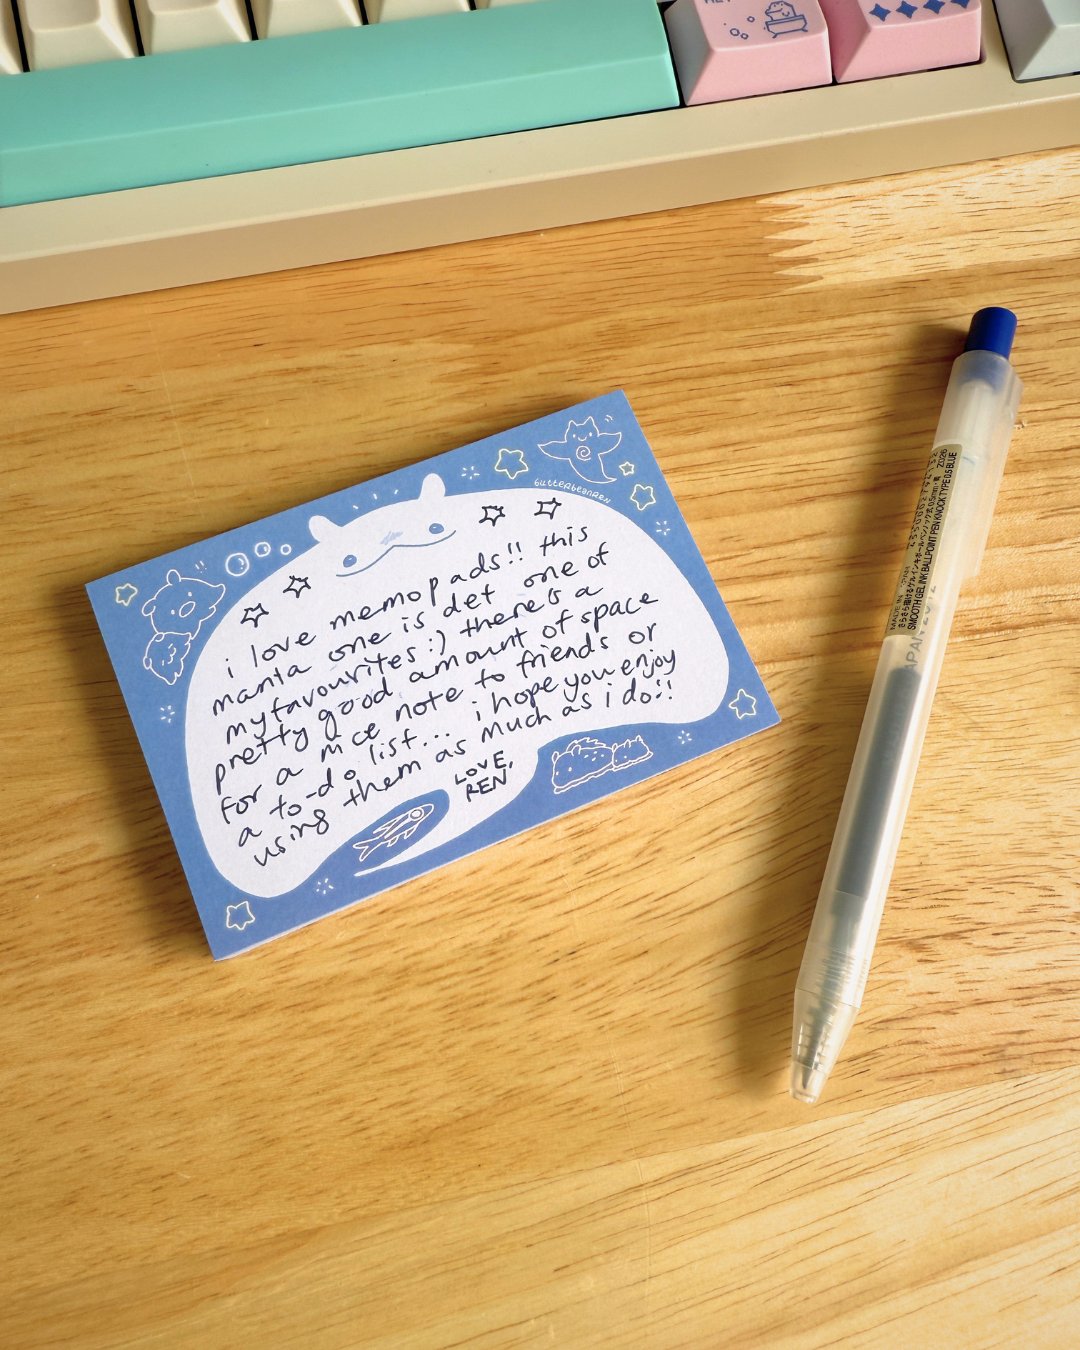 butterbeanren
i love memo pads!! this
manta one is def one of
my favourites :) there's a
pretty good amount of space
for a nice note to friends or
a to-do list... i hope you enjoy
using them as much as i do!!
LOVE,
REN
MADE IN
さらさら描けるゲルインキボールペンノック式0.5mm・青
SMOOTH GEL INK BALLPOINT PEN KNOCK TYPE 0.5 BLUE